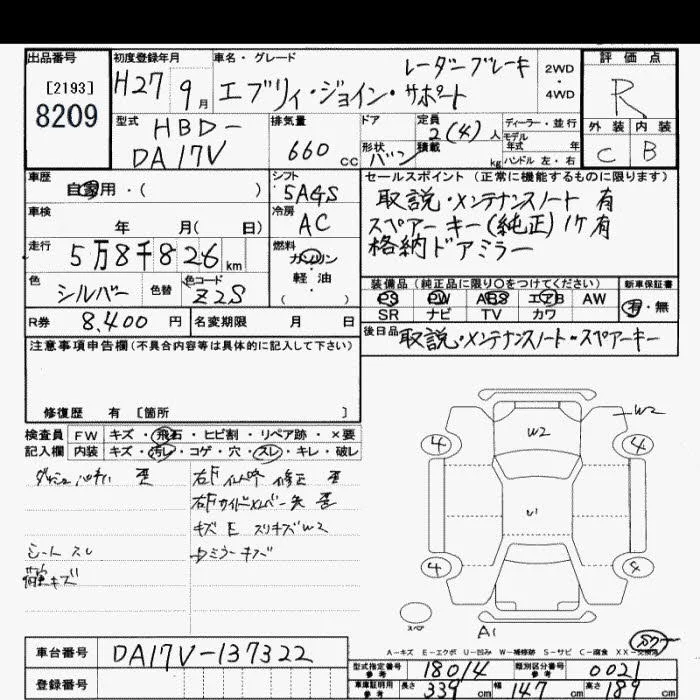 出品番号 初度登録年月 車名・グレード レーダーブレーキ 2WD・4WD 評価点
[2193]
8209
H27 9月 エブリィ・ジョイン・サポート
R
型式 HBD-DA17V
排気量 660 cc
ドア 形状 バン
定員 2(4)人
積載 kg
ディーラー・並行
モデル年式 年
ハンドル 左・右
外装 内装
C B
車歴 自家用・( )
シフト 5AGS
セールスポイント(正常に機能するものに限ります)
車検 年 月( 日)
冷房 AC
取説・メンテナンスノート 有
スペアーキー(純正)1ケ有
格納ドアミラー
走行 5万8千826km
燃料 ガソリン
軽・油
( )
色 シルバー 色替 色コード Z2S
装備品(純正品に限り○をつけてください) 新車保証書
PS PW ABS エアB AW 有・無
SR ナビ TV カワ
R券 8,400円 名変期限 月 日
後日品 取説・メンテナンスノート・スペアーキー
注意事項申告欄(不具合内容等は具体的に記入して下さい)
修復歴 有 [箇所 ]
検査員 FW キズ・飛石・ヒビ割・リペア跡・×要
記入欄 内装 キズ・汚レ・コゲ・穴・スレ・キレ・破レ
シート スレ
荷室キズ
キズ E スリキズW2
ミラーキズ
W2
W2
4 4
U1
4 4
スペア
A1
A-キズ E-エクボ U-凹み W-補修跡 S-サビ C-腐食 XX-交換済
車台番号 DA17V-137322
登録番号
型式指定番号 参考 18014 類別区分番号 参考 0021
車庫証明用 参考 長さ 339cm 幅 147cm 高さ 189cm